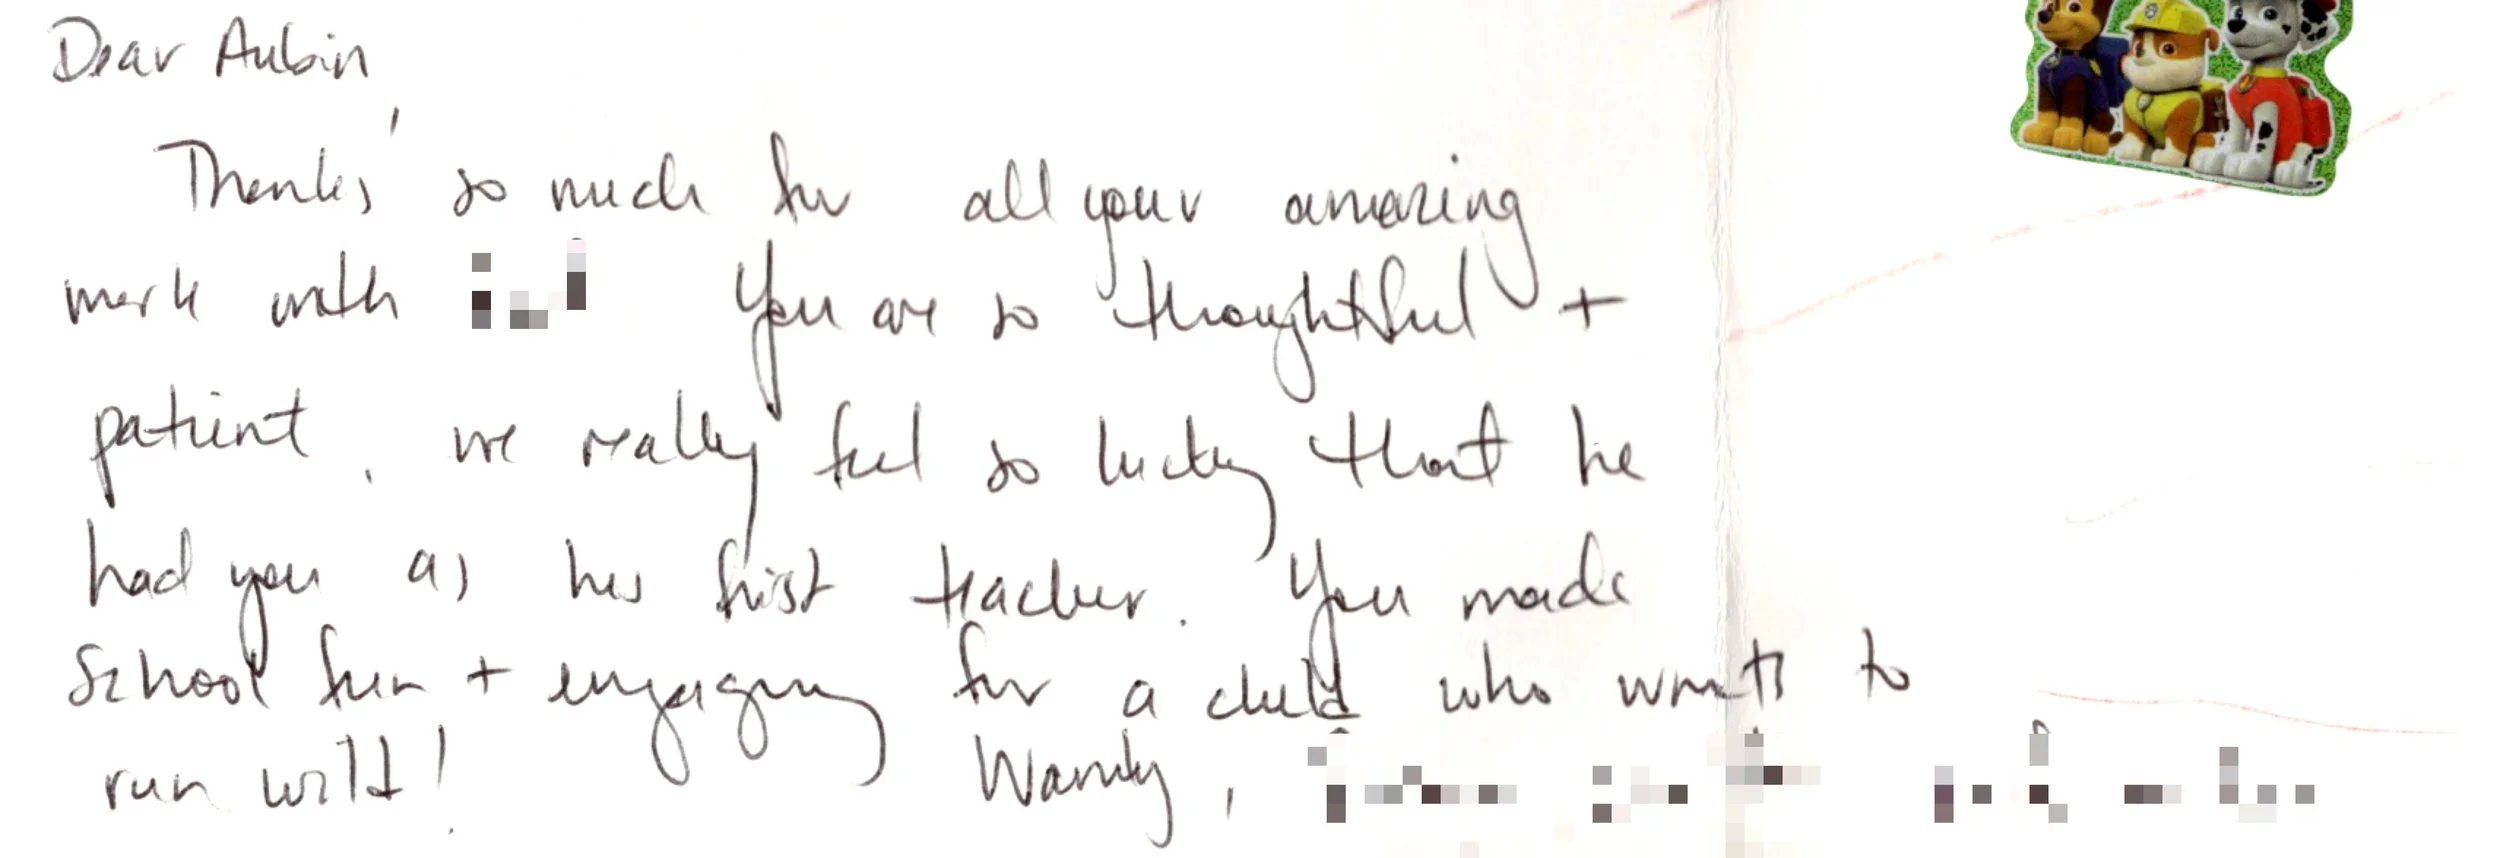 Dear Aubin,
Thanks so much for all your amazing
work with You are so thoughtful +
patient, we really feel so lucky that he
had you as his first teacher. You made
School fun + engaging for a child who wants to
run wild! Warmly,